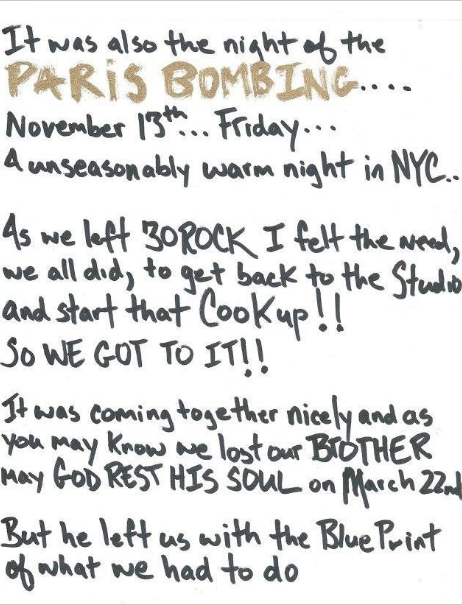 It was also the night of the
PARIS BOMBING....
November 13th... Friday...
A unseasonably warm night in NYC..
As we left 30ROCK I felt the need,
we all did, to get back to the Studio
and start that Cookup!!
So WE GOT TO IT!!
It was coming together nicely and as
you may know we lost our BROTHER
may GOD REST HIS SOUL on March 22nd
But he left us with the Blue Print
of what we had to do